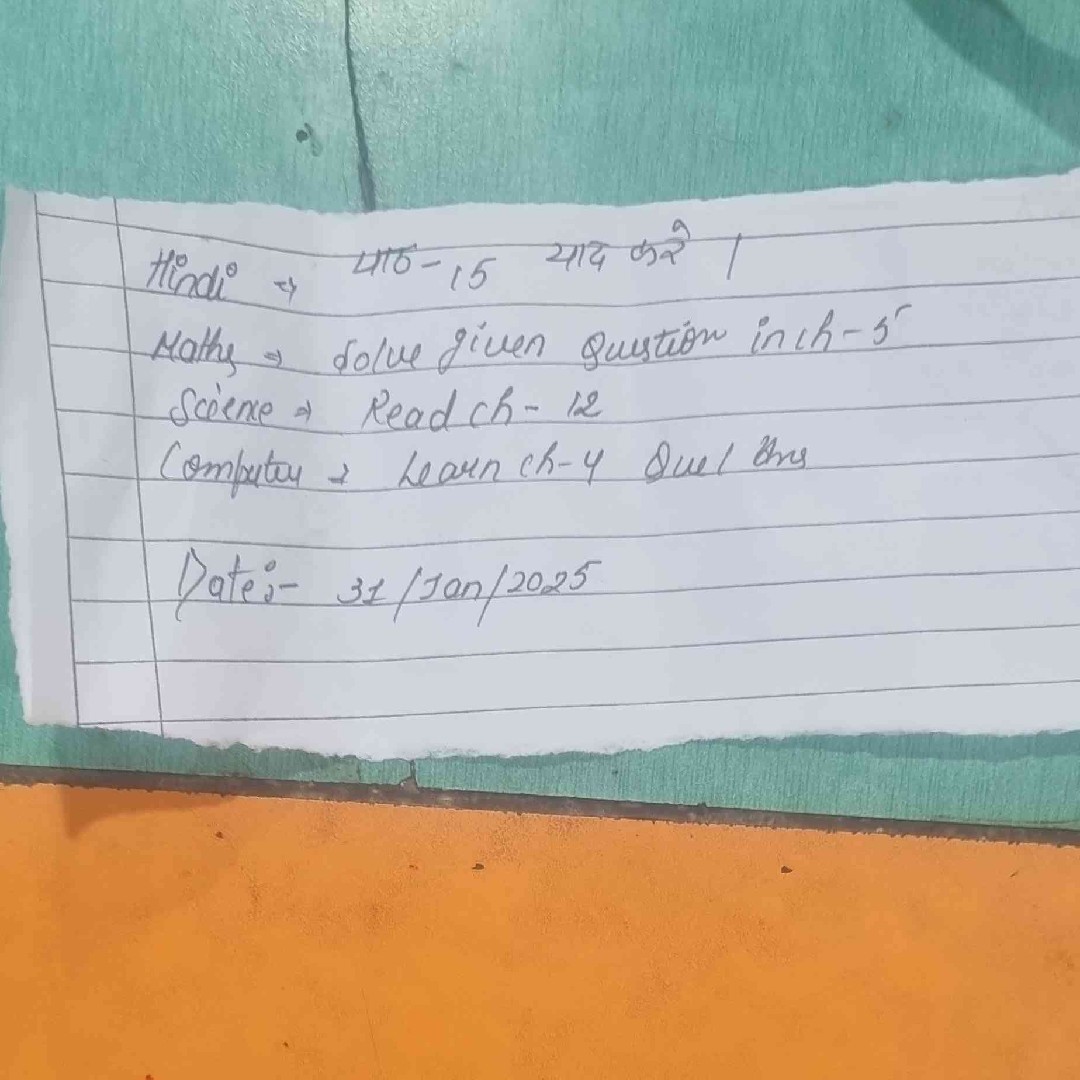 Hindi ⇒ पाठ - 15 याद करे ।
Maths ⇒ Solve given Question in ch - 5
Science ⇒ Read ch - 12
Computer → Learn ch - 4 Que/ Ans
Date :- 31/Jan/2025